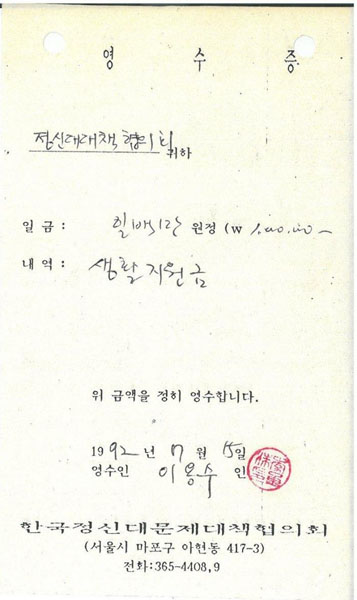 영 수 증
정신대대책협의회 귀하
일 금 : 일백만 원정 (₩ 1,000,000 -
내 역 : 생활지원금
위 금액을 정히 영수합니다.
1992 년 7 월 15일
영수인 이용수 인
한국정신대문제대책협의회
(서울시 마포구 아현동 417-3)
전화:365-4408,9